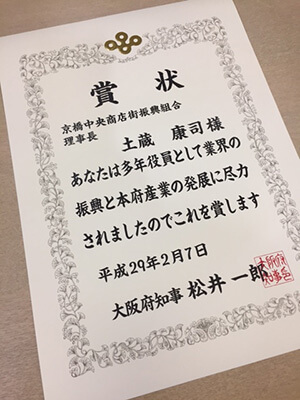 賞状
京橋中央商店街振興組合
理事長
土蔵 康司様
あなたは多年役員として業界の
振興と本府産業の発展に尽力
されましたのでこれを賞します
平成29年2月7日
大阪府知事 松井一郎